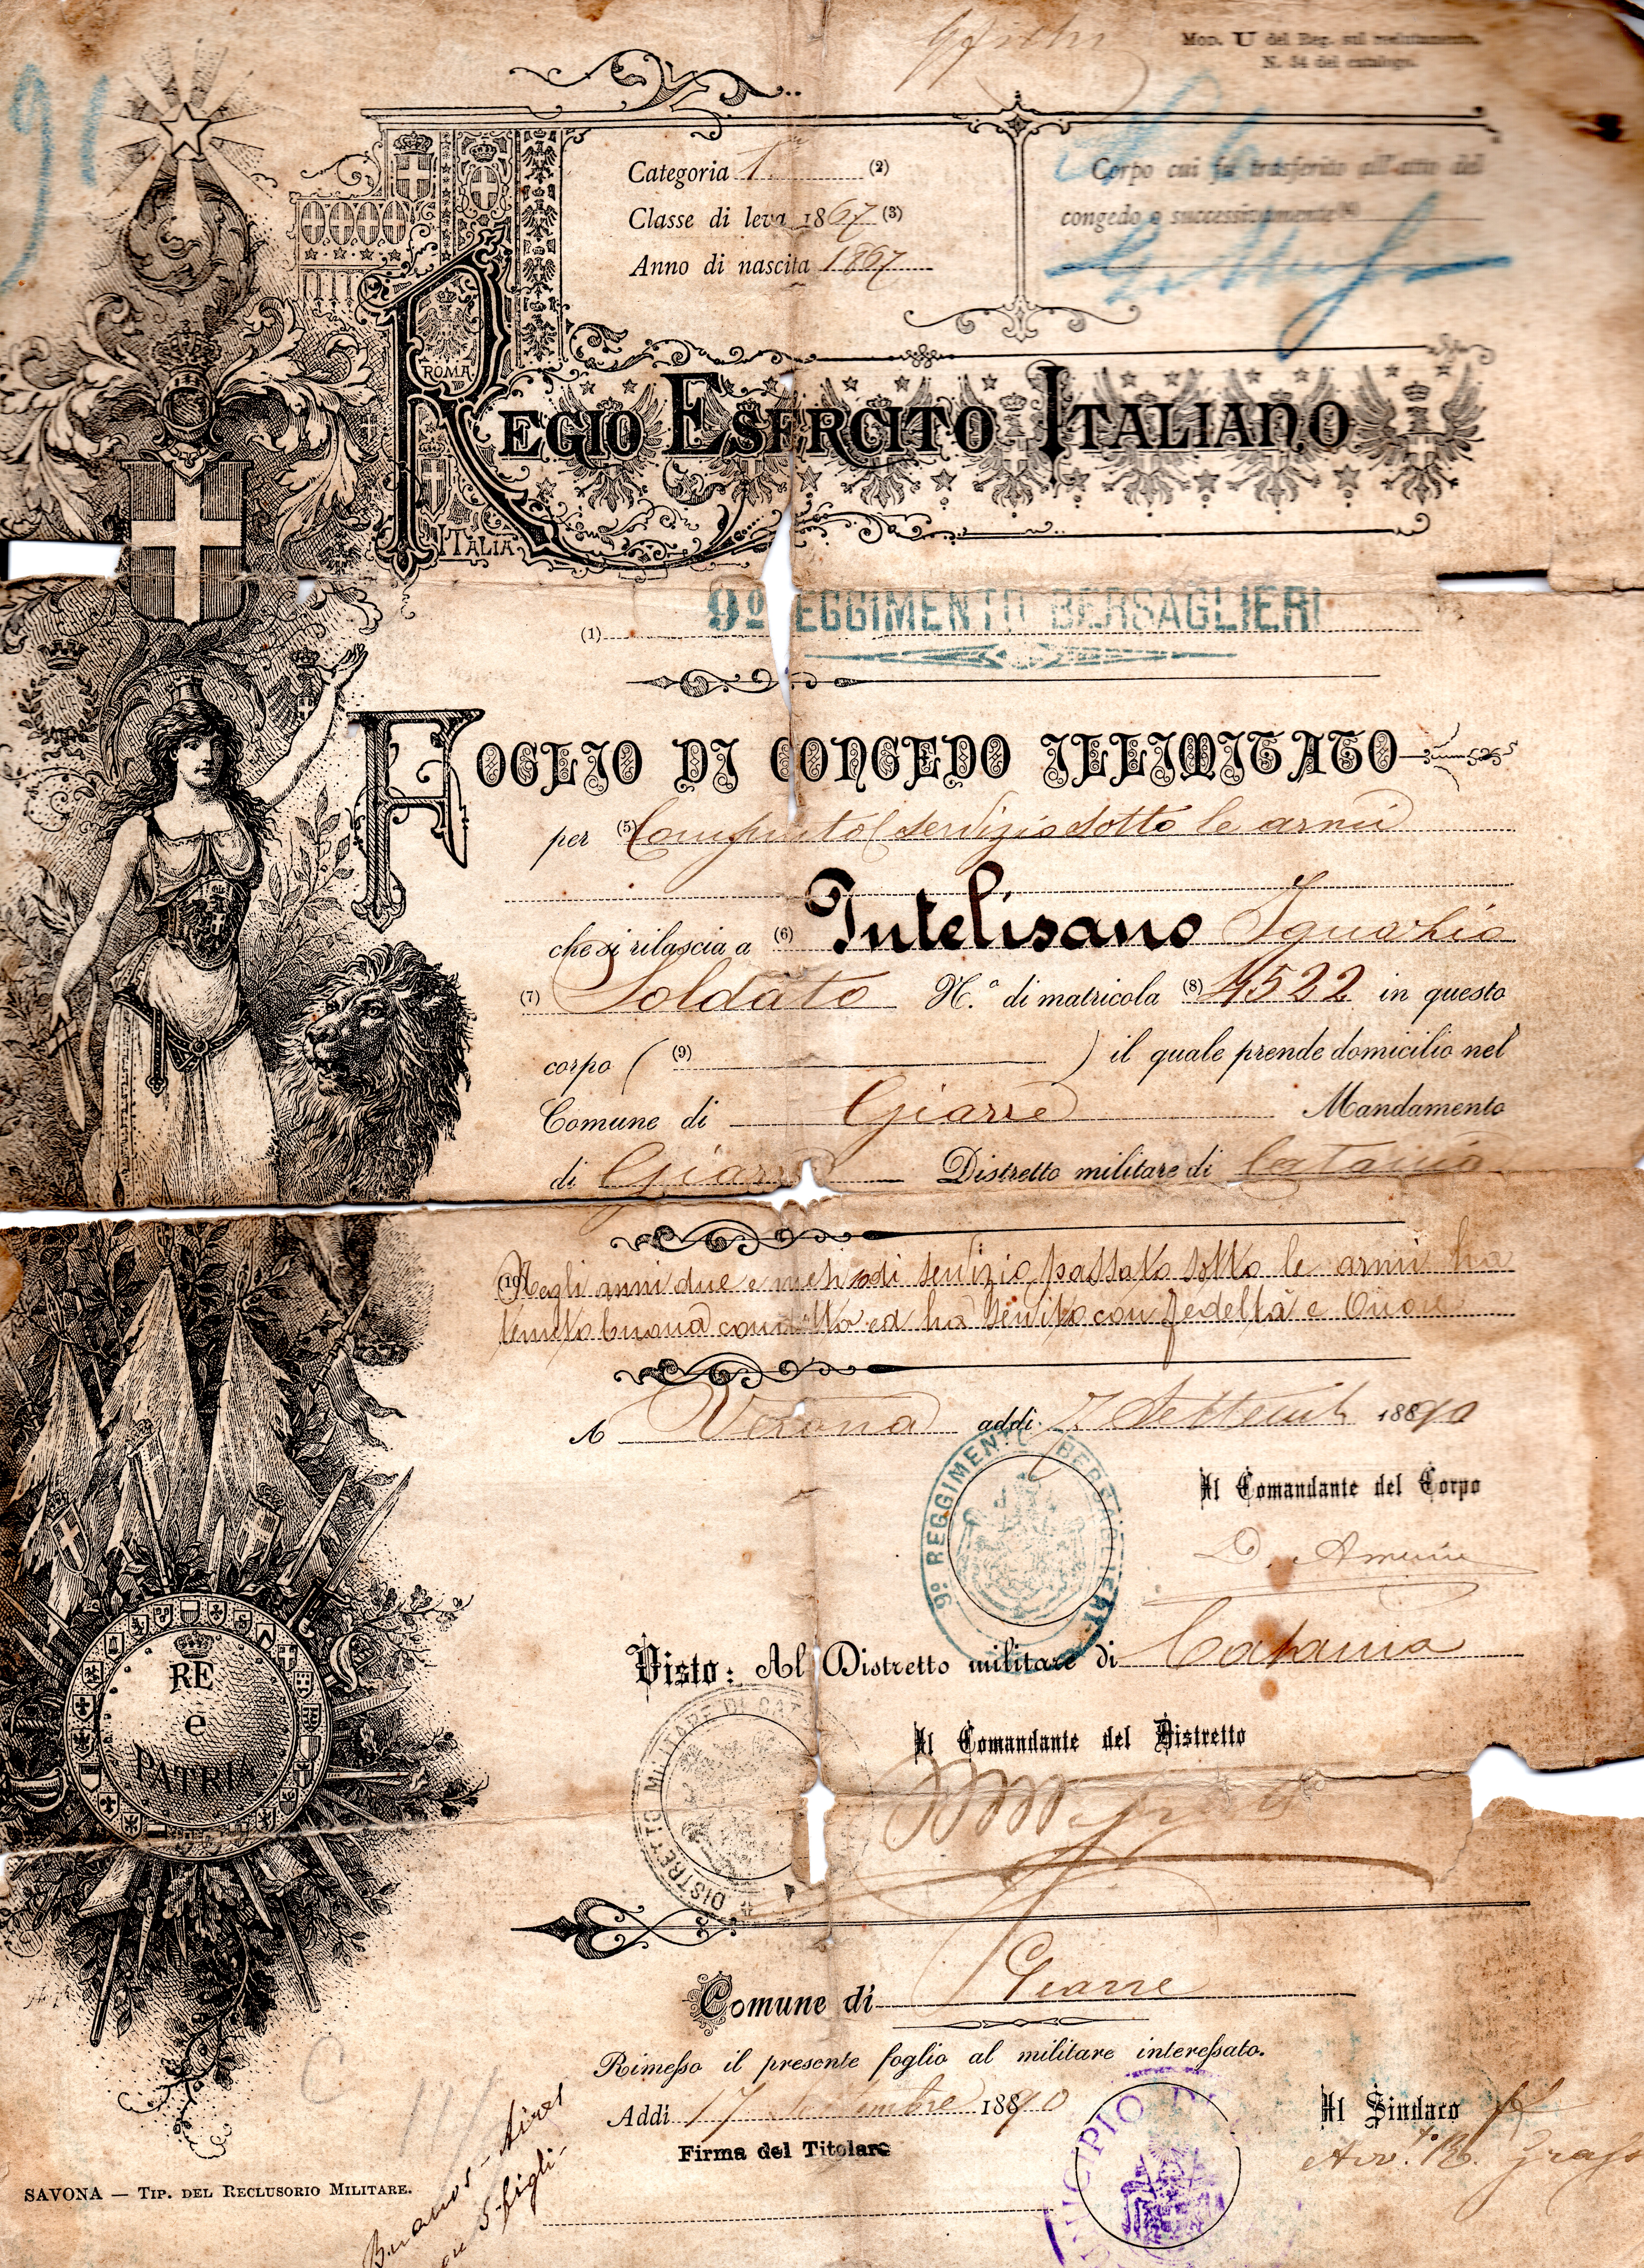 91
Mod. U del Reg. sul reclutamento.
N. 34 del catalogo.
Categoria 1a (2)
Classe di leva 1867 (3)
Anno di nascita 1867
Corpo cui fu trasferito all'atto del
congedo o successivamente (4)
ROMA
REGIO ESERCITO ITALIANO
ITALIA
(1) 9º REGGIMENTO BERSAGLIERI
FOGLIO DI CONGEDO ILLIMITATO
per (5) Compiuto servizio sotto le armi
che si rilascia a (6) Intelisano Ignazio
(7) Soldato N.º di matricola (8) 4522 in questo
corpo ( (9) ) il quale prende domicilio nel
Comune di Giarre Mandamento
di Giarre Distretto militare di Catania
(10) Negli anni due e mesi di servizio passato sotto le armi ha
tenuto buona condotta ed ha servito con fedeltà e Onore
A Verona addì 7 Settemb 1890
9º REGGIMENTO BERSAGLIERI
Il Comandante del Corpo
Visto: Il Distretto militare di Catania
RE
e
PATRIA
DISTRETTO MILITARE DI CAT
Il Comandante del Distretto
Comune di Giarre
Rimesso il presente foglio al militare interessato.
Addì 17 Settembre 1890
Il Sindaco
Firma del Titolare
Avv.to
MUNICIPIO DI
SAVONA — TIP. DEL RECLUSORIO MILITARE.
Buenos-Aires
5 figli